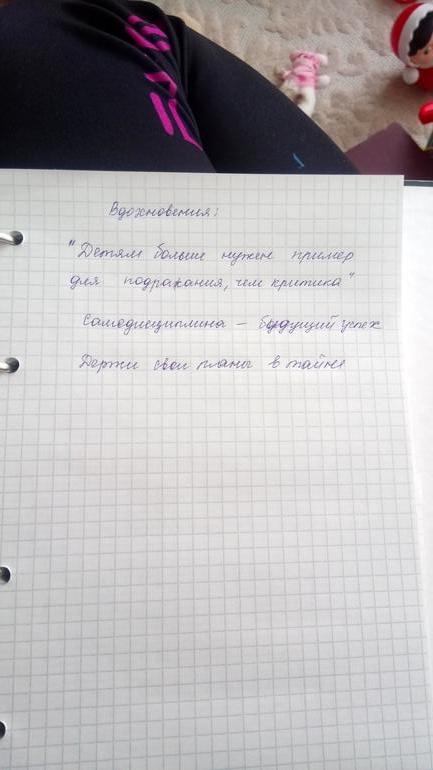 Вдохновения:
"Детям больше нужен пример
для подражания, чем критика"
Самодисциплина – будущий успех
Держи свои планы в тайне